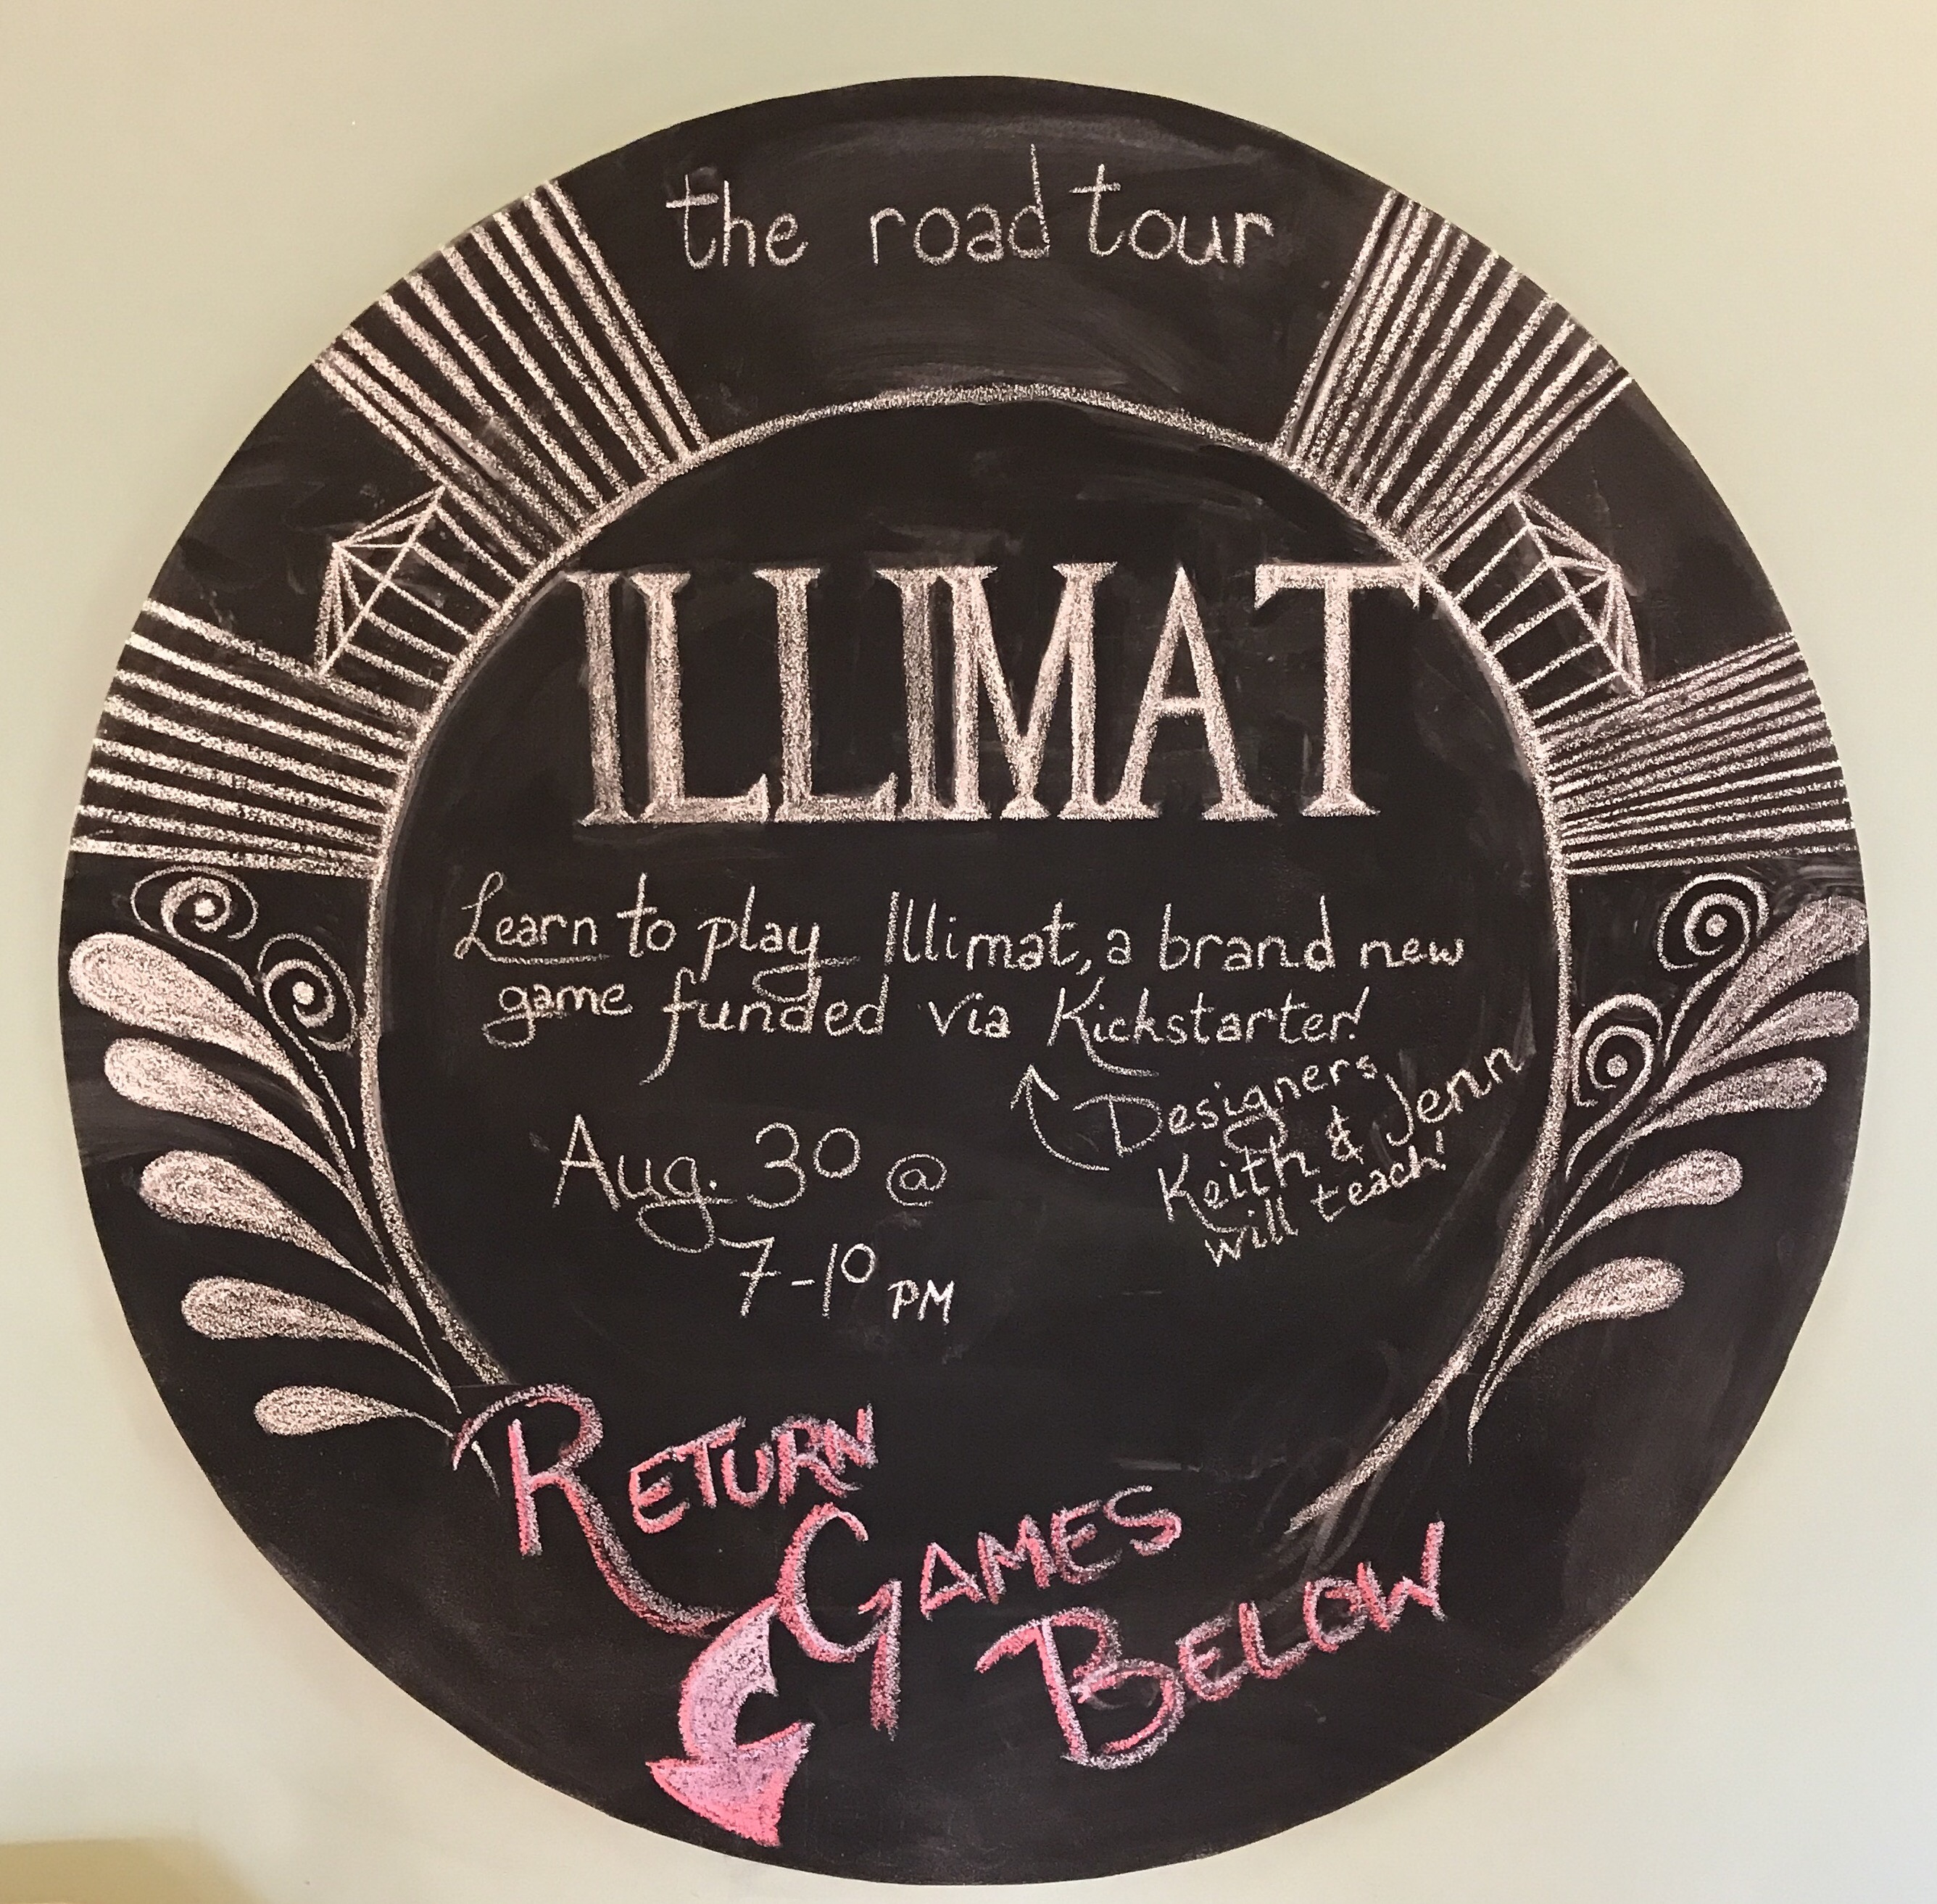 the road tour
ILLIMAT
Learn to play Illimat, a brand new
game funded via Kickstarter!
Designers
Keith & Jenn
will teach!
Aug. 30 @
7-10 PM
RETURN
GAMES
BELOW